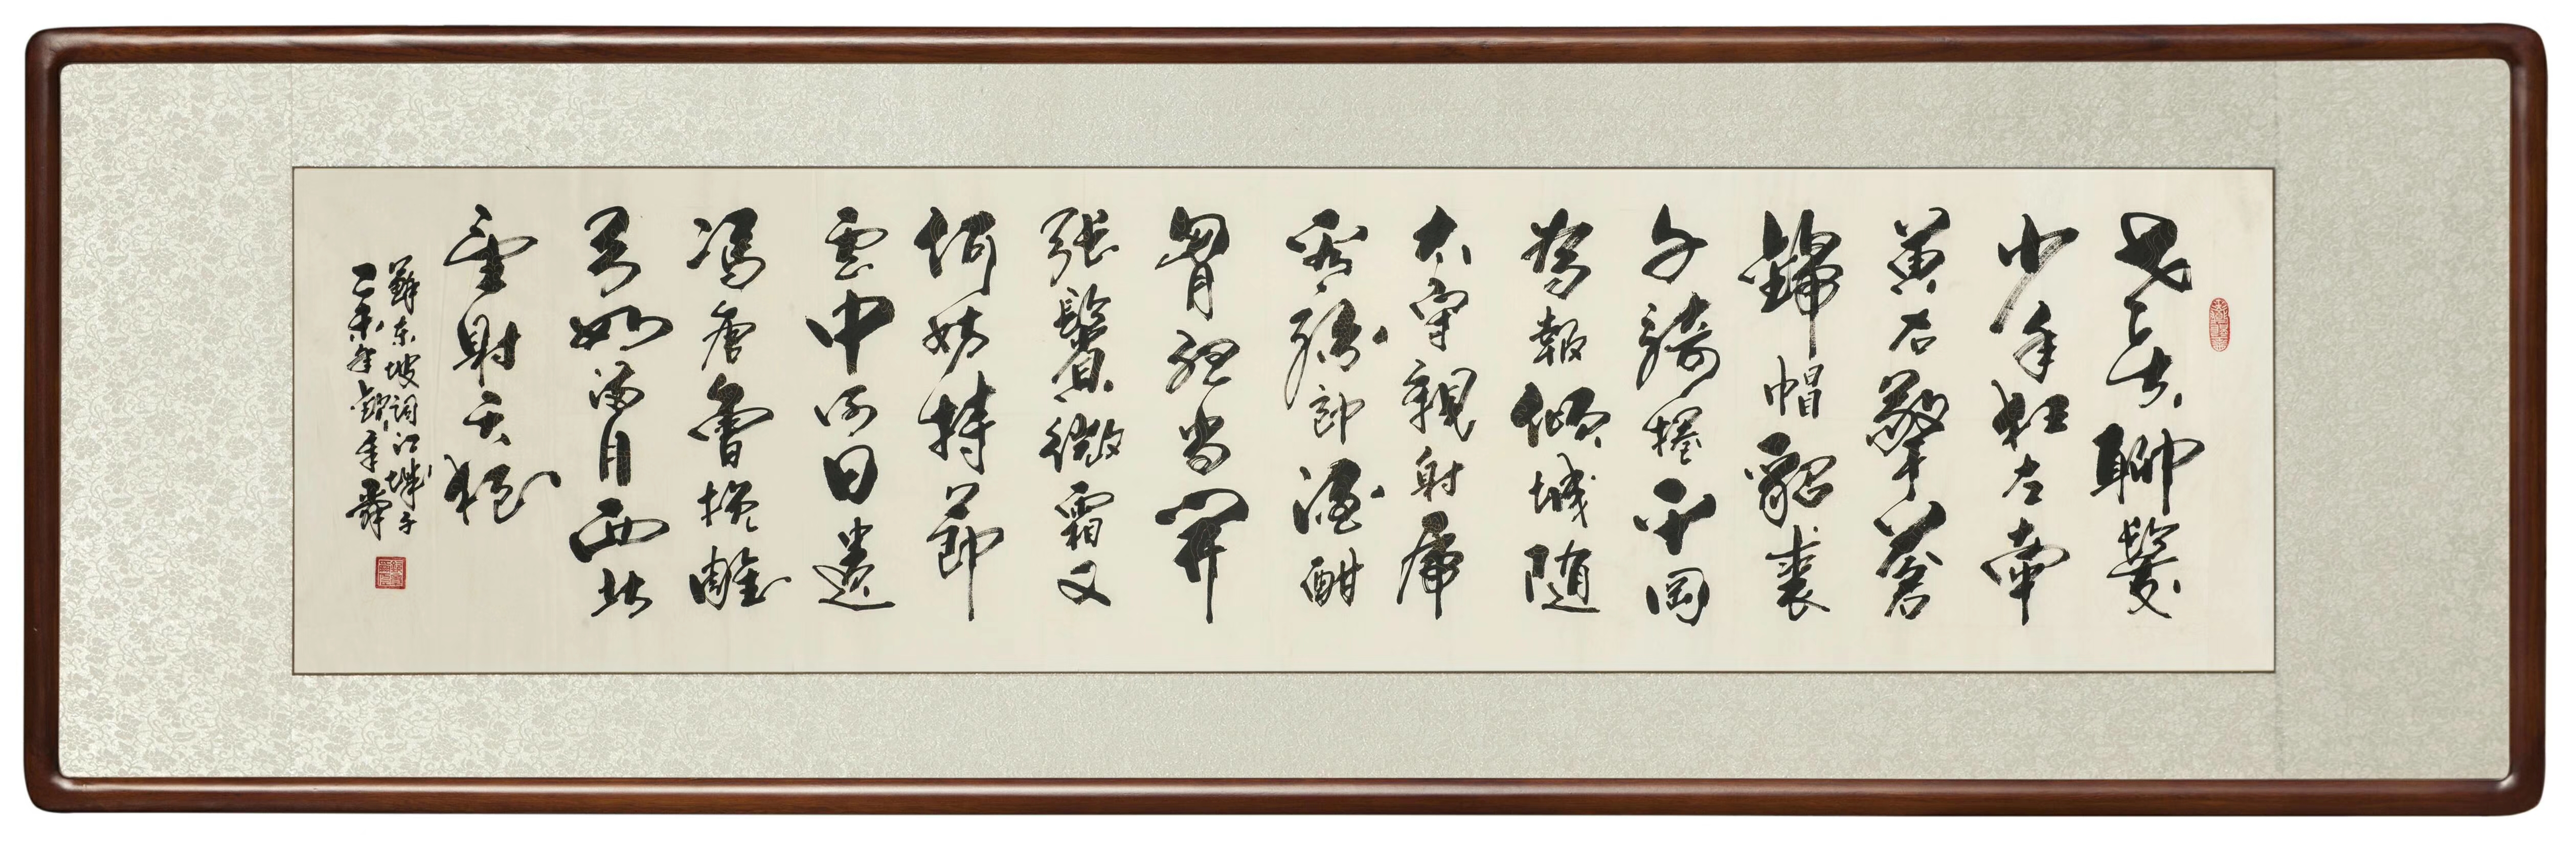 老夫聊髮
少年狂左牽
黃右擎蒼
錦帽貂裘
千騎捲平岡
為報傾城隨
太守親射虎
看孫郎酒酣
胷膽尚開
張鬢微霜又
何妨持節
雲中何日遣
馮唐會挽雕
弓如滿月西北
望射天狼
蘇東坡詞江城子
乙未年